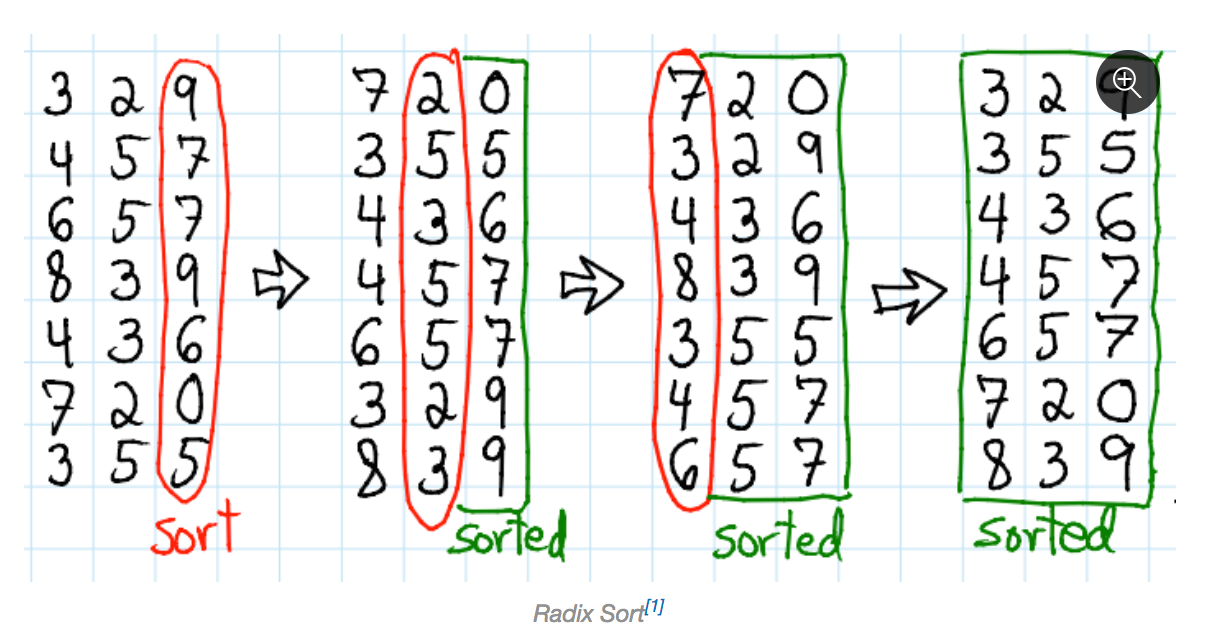 3 2 9
4 5 7
6 5 7
8 3 9
4 3 6
7 2 0
3 5 5
sort
7 2 0
3 5 5
4 3 6
4 5 7
6 5 7
3 2 9
8 3 9
sorted
7 2 0
3 2 9
4 3 6
8 3 9
3 5 5
4 5 7
6 5 7
sorted
3 2 9
3 5 5
4 3 6
4 5 7
6 5 7
7 2 0
8 3 9
sorted
Radix Sort[1]